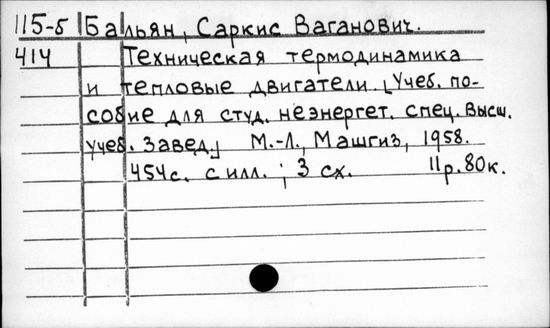 115-5 Бальян, Саркис Ваганович.
414 Техническая термодинамика
и тепловые двигатели. [Учеб. по-
собие для студ. неэнергет. спец. Высш.
учеб. завед.] М.-Л., Машгиз, 1958.
454с. с илл.; 3 сх. 11р.80к.